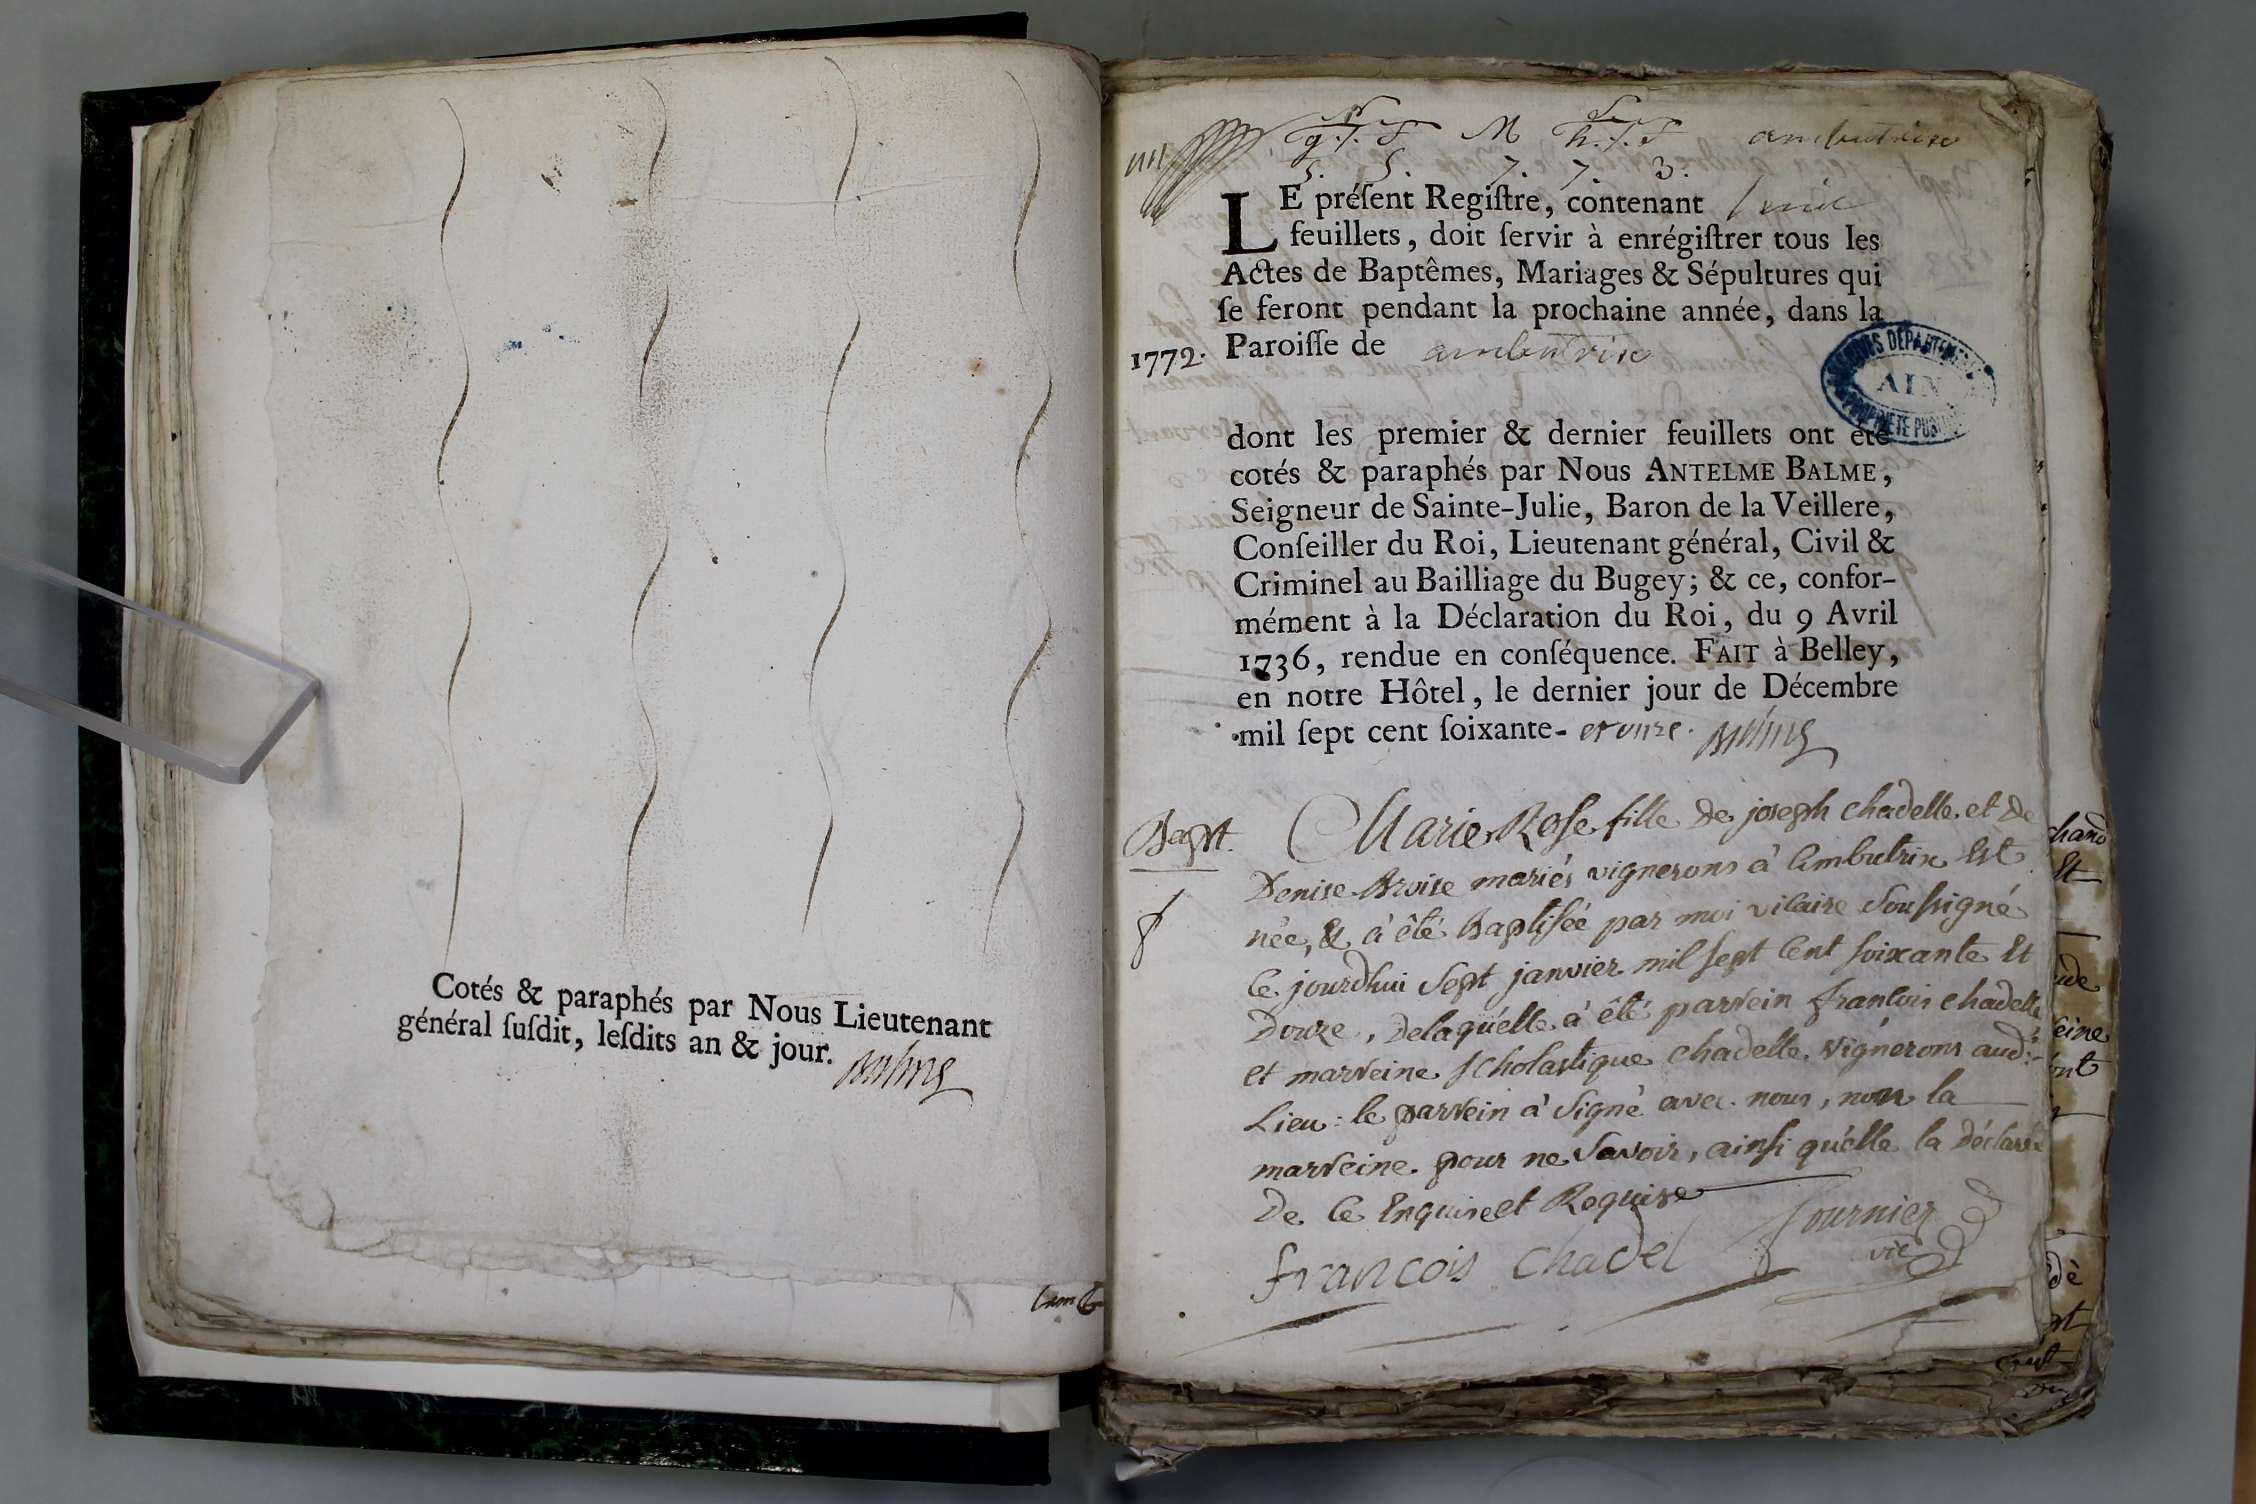 Cotés & paraphés par Nous Lieutenant
général ſuſdit, leſdits an & jour.
Balme
g.l.s M h.l.s ambutrix
5. 5. 7. 7. 3.
LE préſent Regiſtre, contenant huit
feuillets, doit ſervir à enrégiſtrer tous les
Actes de Baptêmes, Mariages & Sépultures qui
ſe feront pendant la prochaine année, dans la
1772. Paroiſſe de ambutrix
ARCHIVES DÉPARTEMENTALES
AIN
PROPRIÉTÉ PUBLIQUE
dont les premier & dernier feuillets ont été
cotés & paraphés par Nous ANTELME BALME,
Seigneur de Sainte-Julie, Baron de la Veillere,
Conſeiller du Roi, Lieutenant général, Civil &
Criminel au Bailliage du Bugey; & ce, confor-
mément à la Déclaration du Roi, du 9 Avril
1736, rendue en conſéquence. FAIT à Belley,
en notre Hôtel, le dernier jour de Décembre
mil ſept cent ſoixante- et onze. Balme
Bapt. Marie Rose fille de joseph chadelle et de
Denise Aroise mariés vignerons à ambutrix Est
née, & à êté Baptisée par moi vicaire Soussigné
ce jourdhui Sept janvier mil sept Cent soixante Et
Douze, Delaquélle à êté parrein francois chadelle
et marreine scholastique chadelle vignerons aud:
Lieu: le parrein à Signé avec nous, non la
marreine pour ne Savoir, ainsi quélle la déclaré
De ce Enquise et Requise
francois chadel fournier
vic